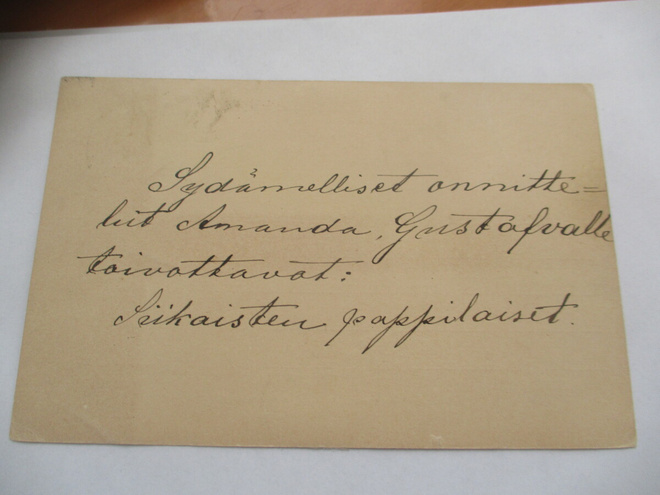 Sydämelliset onnitte=
lut Amanda, Gustafvalle
toivottavat:
Siikaisten pappilaiset.